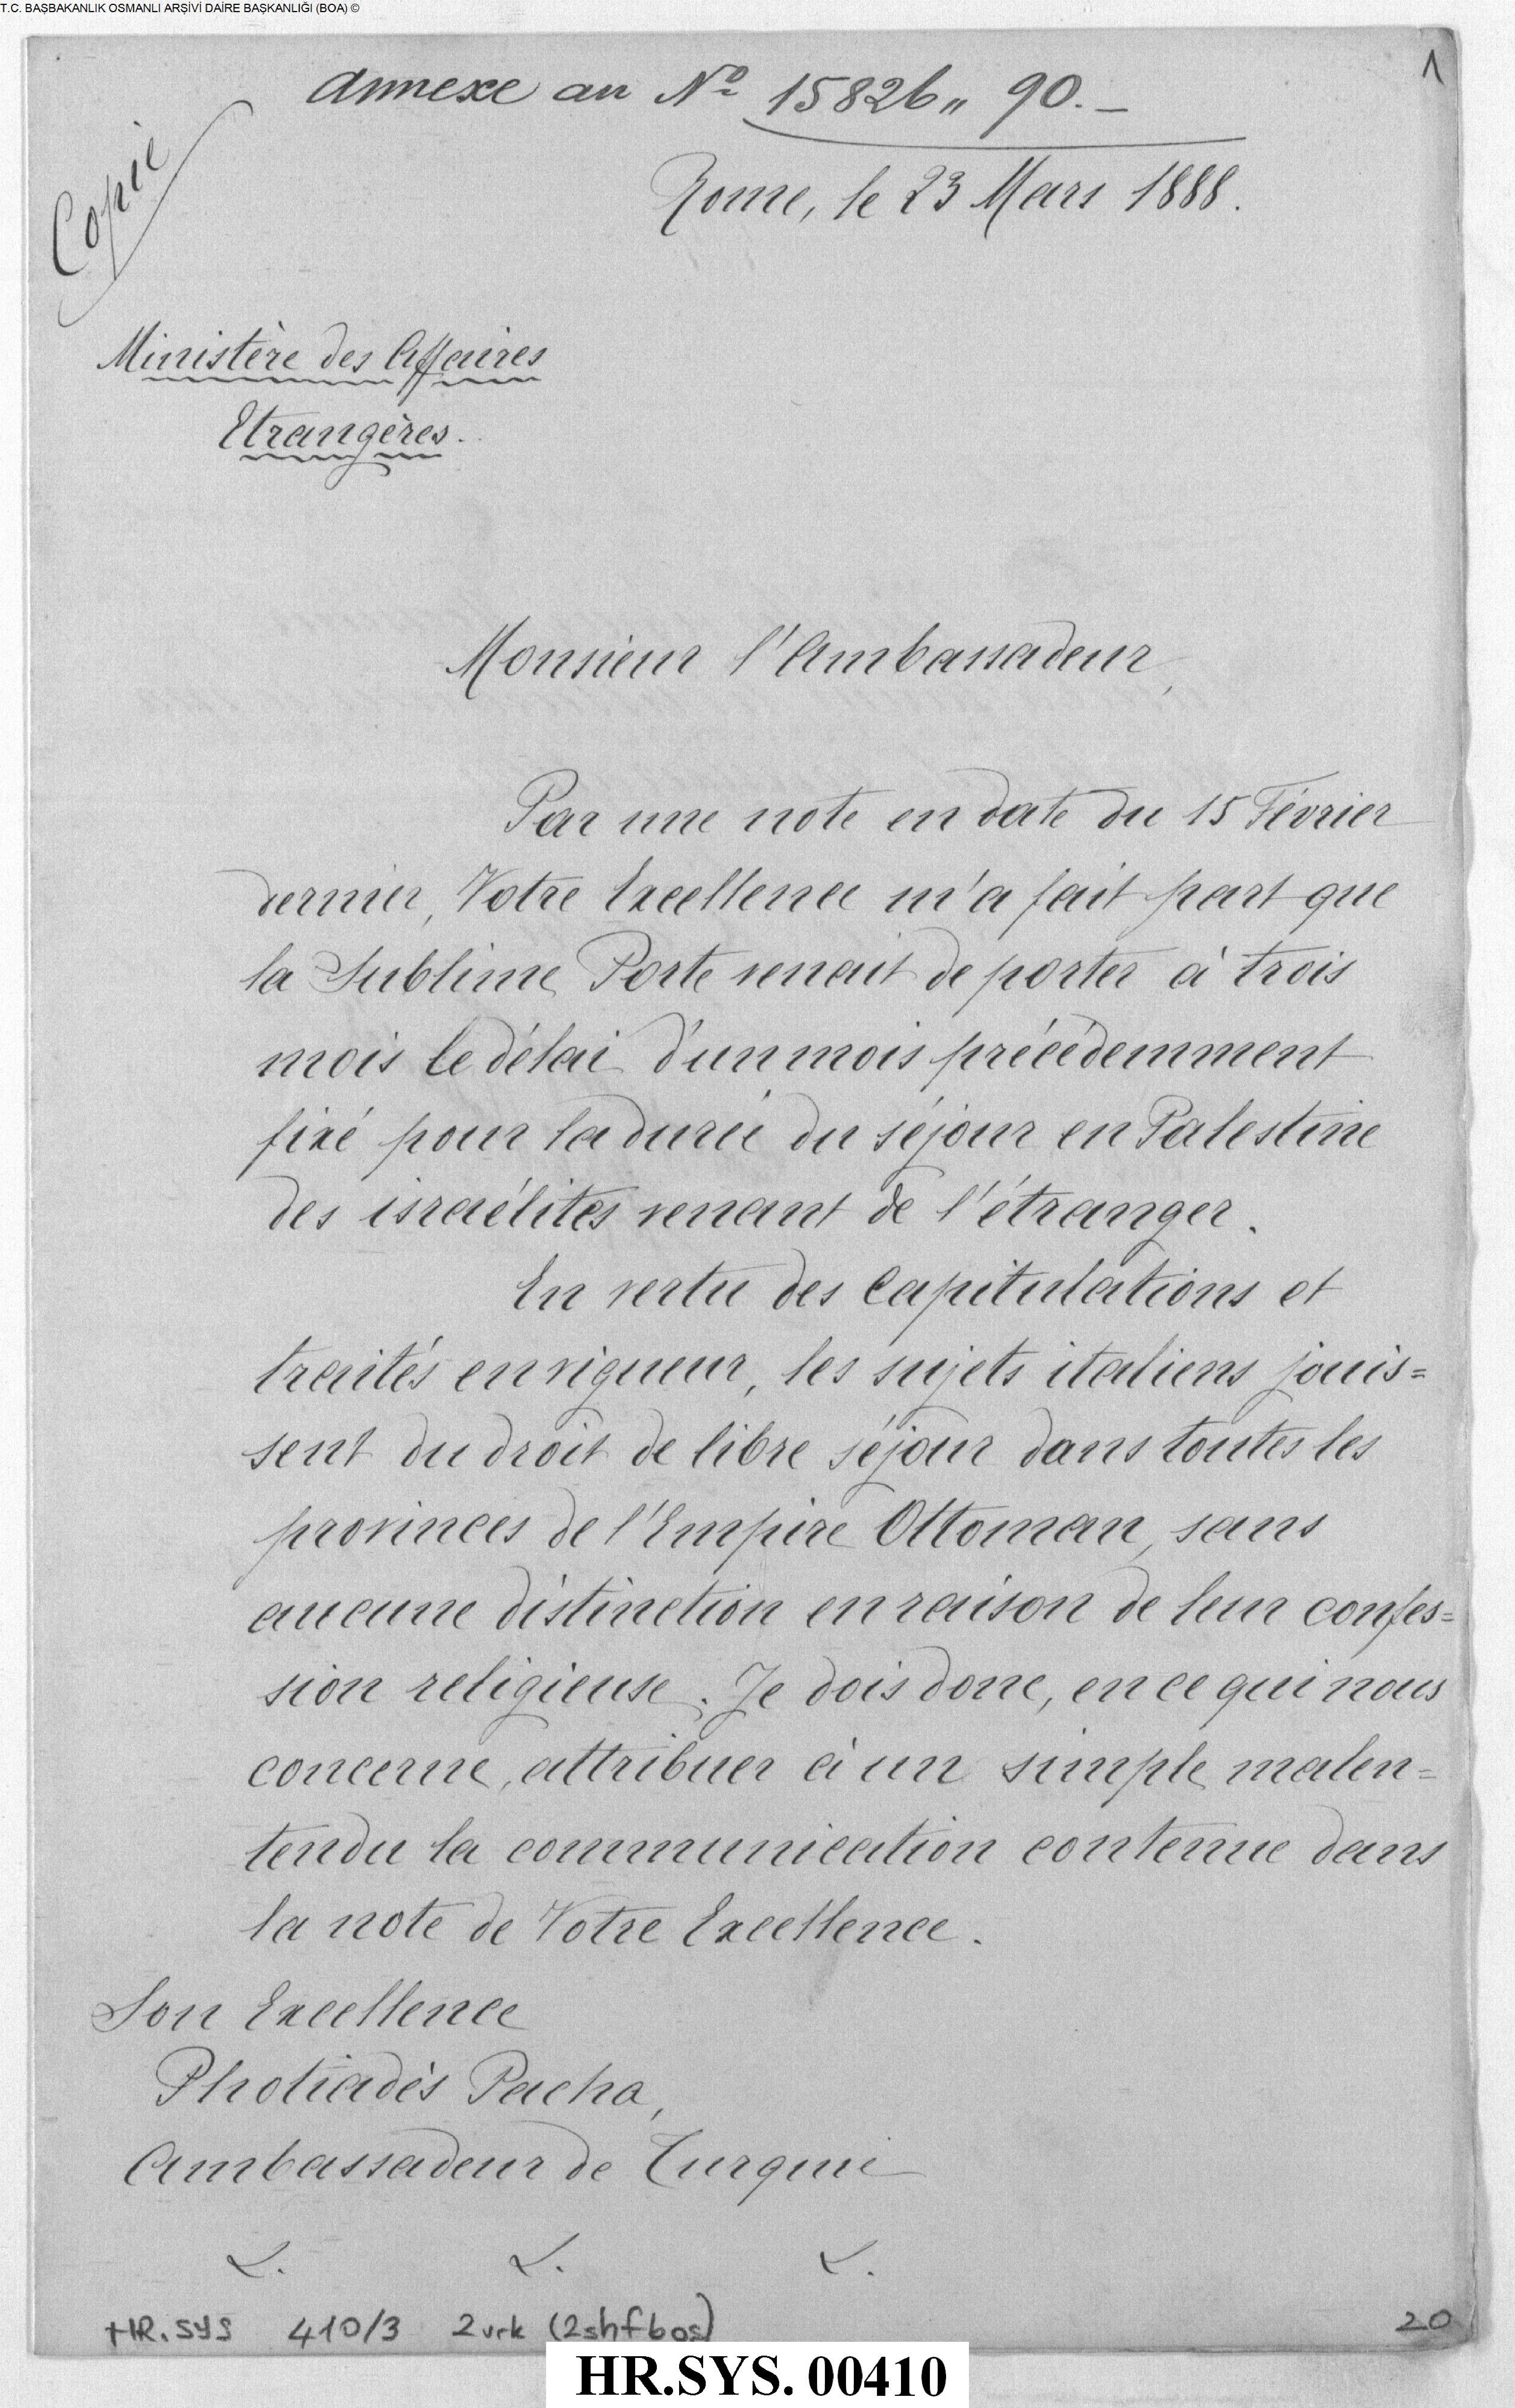 T.C. BAŞBAKANLIK OSMANLI ARŞİVİ DAİRE BAŞKANLIĞI (BOA) ©
1
Annexe au Nº 15826 " 90.-
Copie
Rome, le 23 Mars 1888.
Ministère des Affaires
Etrangères.
Monsieur l'Ambassadeur,
Par une note en date du 15 Février
dernier, Votre Excellence m'a fait part que
la Sublime Porte venait de porter à trois
mois le délai d'un mois précédemment
fixé pour la durée du séjour en Palestine
des israélites venant de l'étranger.
En vertu des Capitulations et
traités en vigueur, les sujets italiens jouis=
sent du droit de libre séjour dans toutes les
provinces de l'Empire Ottoman, sans
aucune distinction en raison de leur confes=
sion religieuse. Je dois donc, en ce qui nous
concerne, attribuer à un simple malen=
tendu la communication contenue dans
la note de Votre Excellence.
Son Excellence
Photiadès Pacha,
Ambassadeur de Turquie
&. &. &.
HR.SYS 410/3 2vrk (2shf bos)
20
HR.SYS. 00410